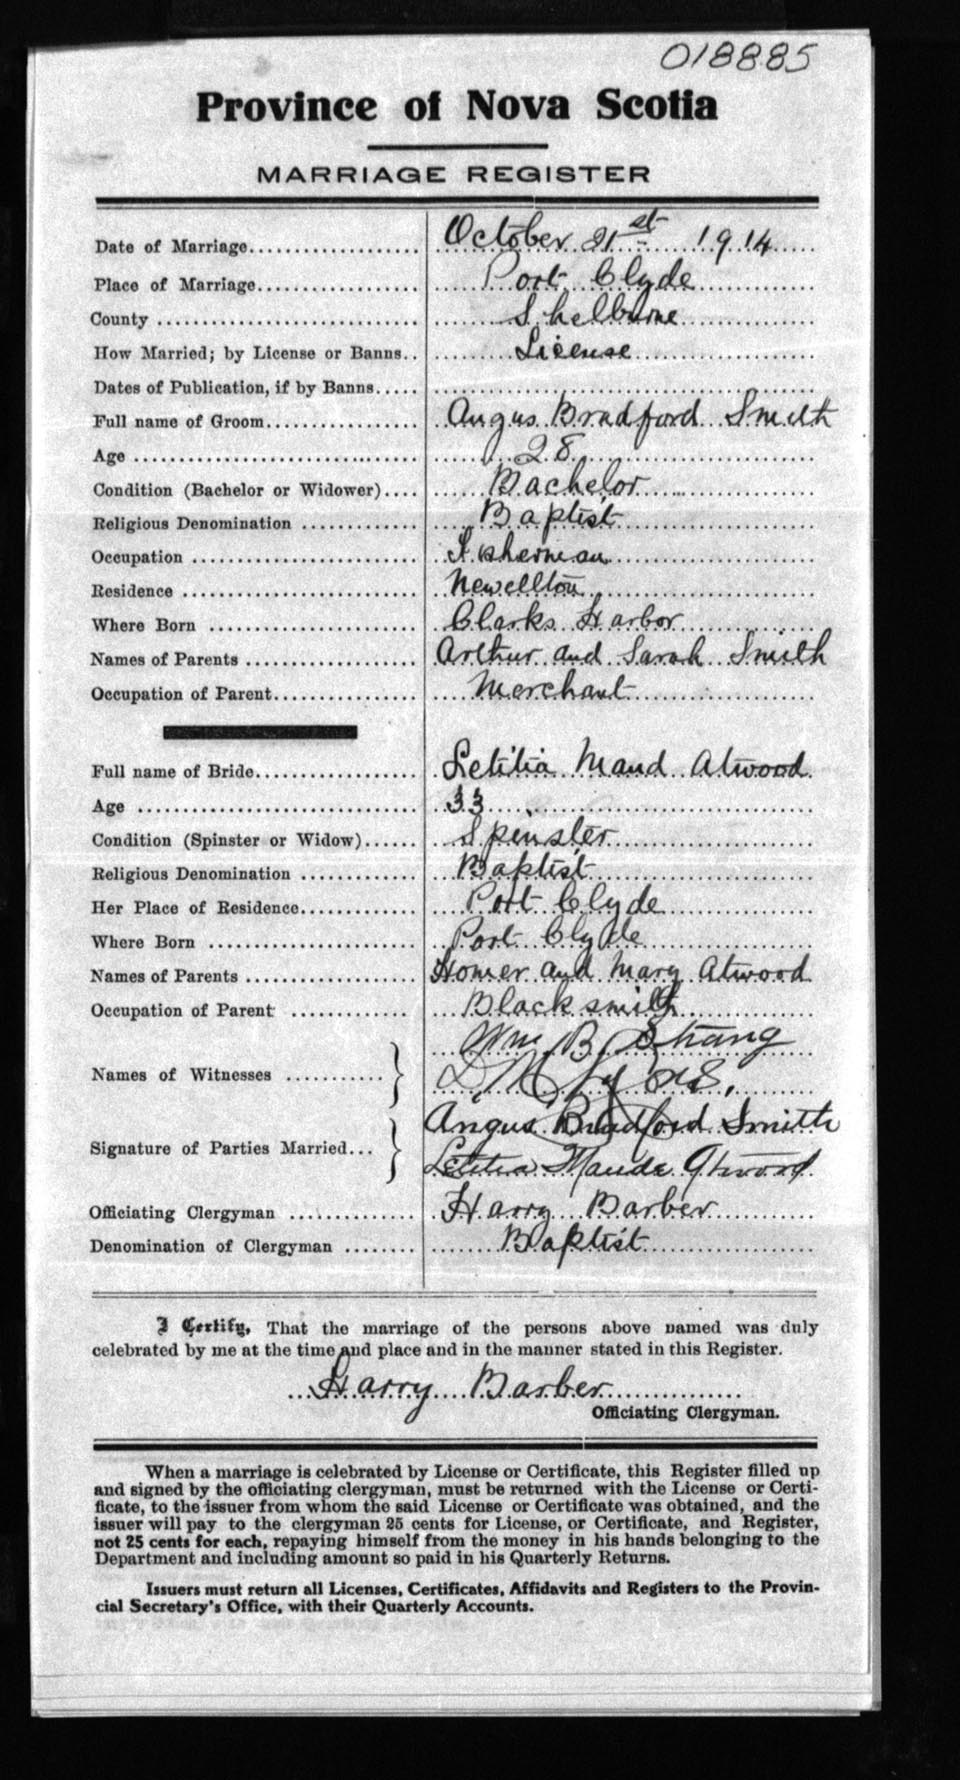 018885
Province of Nova Scotia
MARRIAGE REGISTER
Date of Marriage.................. October 21st 1914
Place of Marriage................. Port Clyde
County ............................ Shelburne
How Married; by License or Banns.. License
Dates of Publication, if by Banns.....
Full name of Groom................ Angus Bradford Smith
Age .............................. 28
Condition (Bachelor or Widower).... Bachelor
Religious Denomination ............ Baptist
Occupation ........................ Fisherman
Residence ......................... Newellton
Where Born ....................... Clarks Harbor
Names of Parents .................. Arthur and Sarah Smith
Occupation of Parent............... Merchant
Full name of Bride................. Letitia Maud Atwood
Age .............................. 33
Condition (Spinster or Widow)...... Spinster
Religious Denomination ............ Baptist
Her Place of Residence............. Port Clyde
Where Born ....................... Port Clyde
Names of Parents .................. Homer and Mary Atwood
Occupation of Parent ............. Blacksmith
Names of Witnesses ........... Wm. B. Strang
Signature of Parties Married... Angus Bradford Smith
Letitia Maude Atwood
Officiating Clergyman ............. Harry Barber
Denomination of Clergyman ........ Baptist
I Certify, That the marriage of the persons above named was duly
celebrated by me at the time and place and in the manner stated in this Register.
Harry Barber
Officiating Clergyman.
When a marriage is celebrated by License or Certificate, this Register filled up
and signed by the officiating clergyman, must be returned with the License or Certi-
ficate, to the issuer from whom the said License or Certificate was obtained, and the
issuer will pay to the clergyman 25 cents for License, or Certificate, and Register,
not 25 cents for each, repaying himself from the money in his hands belonging to the
Department and including amount so paid in his Quarterly Returns.
Issuers must return all Licenses, Certificates, Affidavits and Registers to the Provin-
cial Secretary's Office, with their Quarterly Accounts.